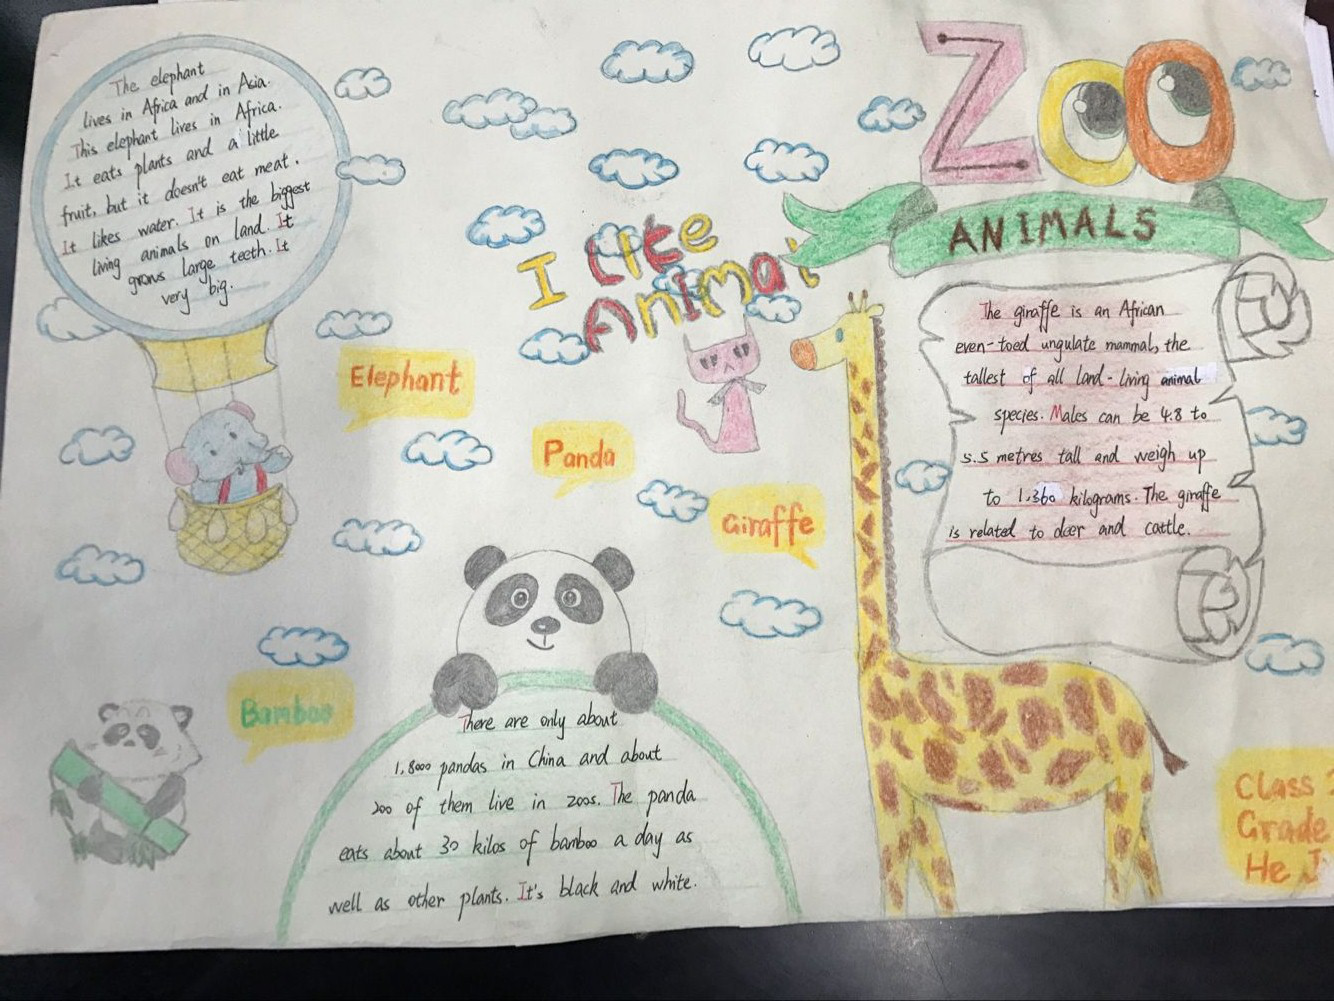 The elephant
lives in Africa and in Asia.
This elephant lives in Africa.
It eats plants and a little
fruit, but it doesn't eat meat.
It likes water. It is the biggest
living animals on land. It
grows large teeth. It
very big.
ZOO
ANIMALS
I like
Animal
Elephant
Panda
Giraffe
Bamboo
The giraffe is an African
even-toed ungulate mammal, the
tallest of all land-living animal
species. Males can be 4.8 to
5.5 metres tall and weigh up
to 1,360 kilograms. The giraffe
is related to deer and cattle.
There are only about
1,8000 pandas in China and about
200 of them live in zoos. The panda
eats about 30 kilos of bamboo a day as
well as other plants. It's black and white.
Class
Grade
He